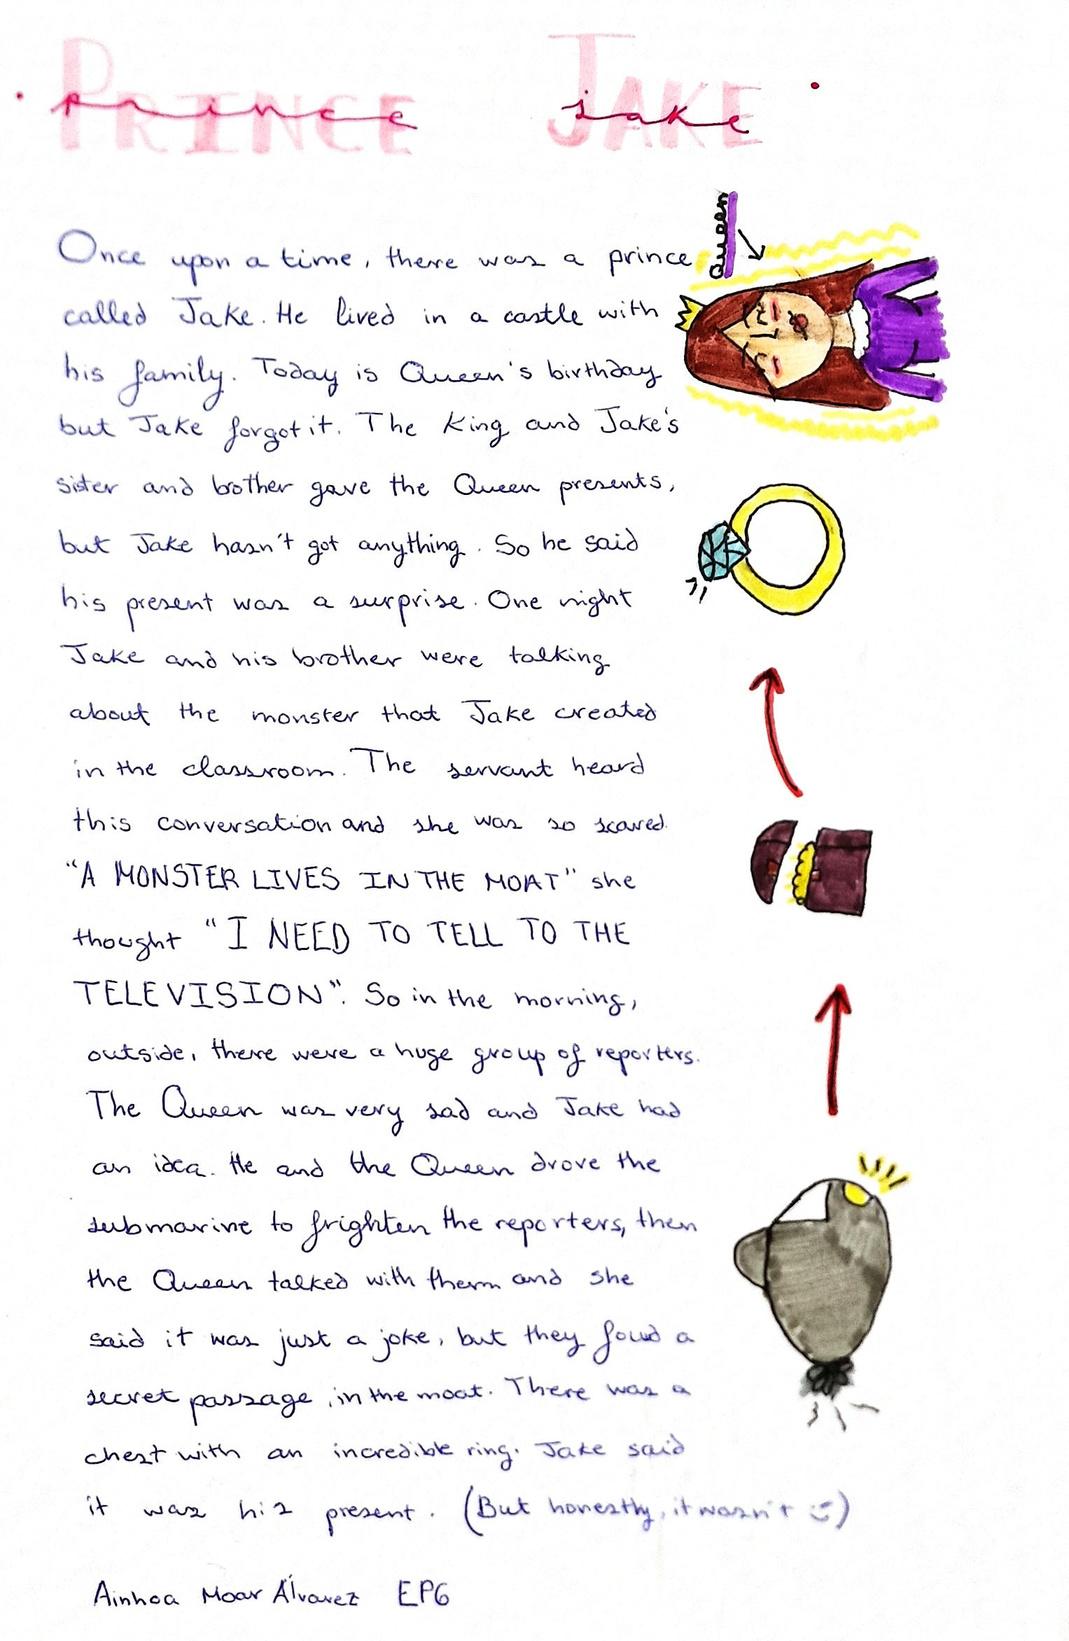 PRINCE JAKE
prince jake
Queen
Once upon a time, there was a prince
called Jake. He lived in a castle with
his family. Today is Queen's birthday
but Jake forgot it. The King and Jake's
sister and brother gave the Queen presents,
but Jake hasn't got anything. So he said
his present was a surprise. One night
Jake and his brother were talking
about the monster that Jake created
in the classroom. The servant heard
this conversation and she was so scared.
"A MONSTER LIVES IN THE MOAT" she
thought "I NEED TO TELL TO THE
TELEVISION". So in the morning,
outside, there were a huge group of reporters.
The Queen was very sad and Jake had
an idea. He and the Queen drove the
submarine to frighten the reporters, then
the Queen talked with therm and she
said it was just a joke, but they foud a
secret passage in the moat. There was a
chest with an incredible ring. Jake said
it was his present. (But honestly, it wasn't :))
Ainhoa Moar Álvarez EP6